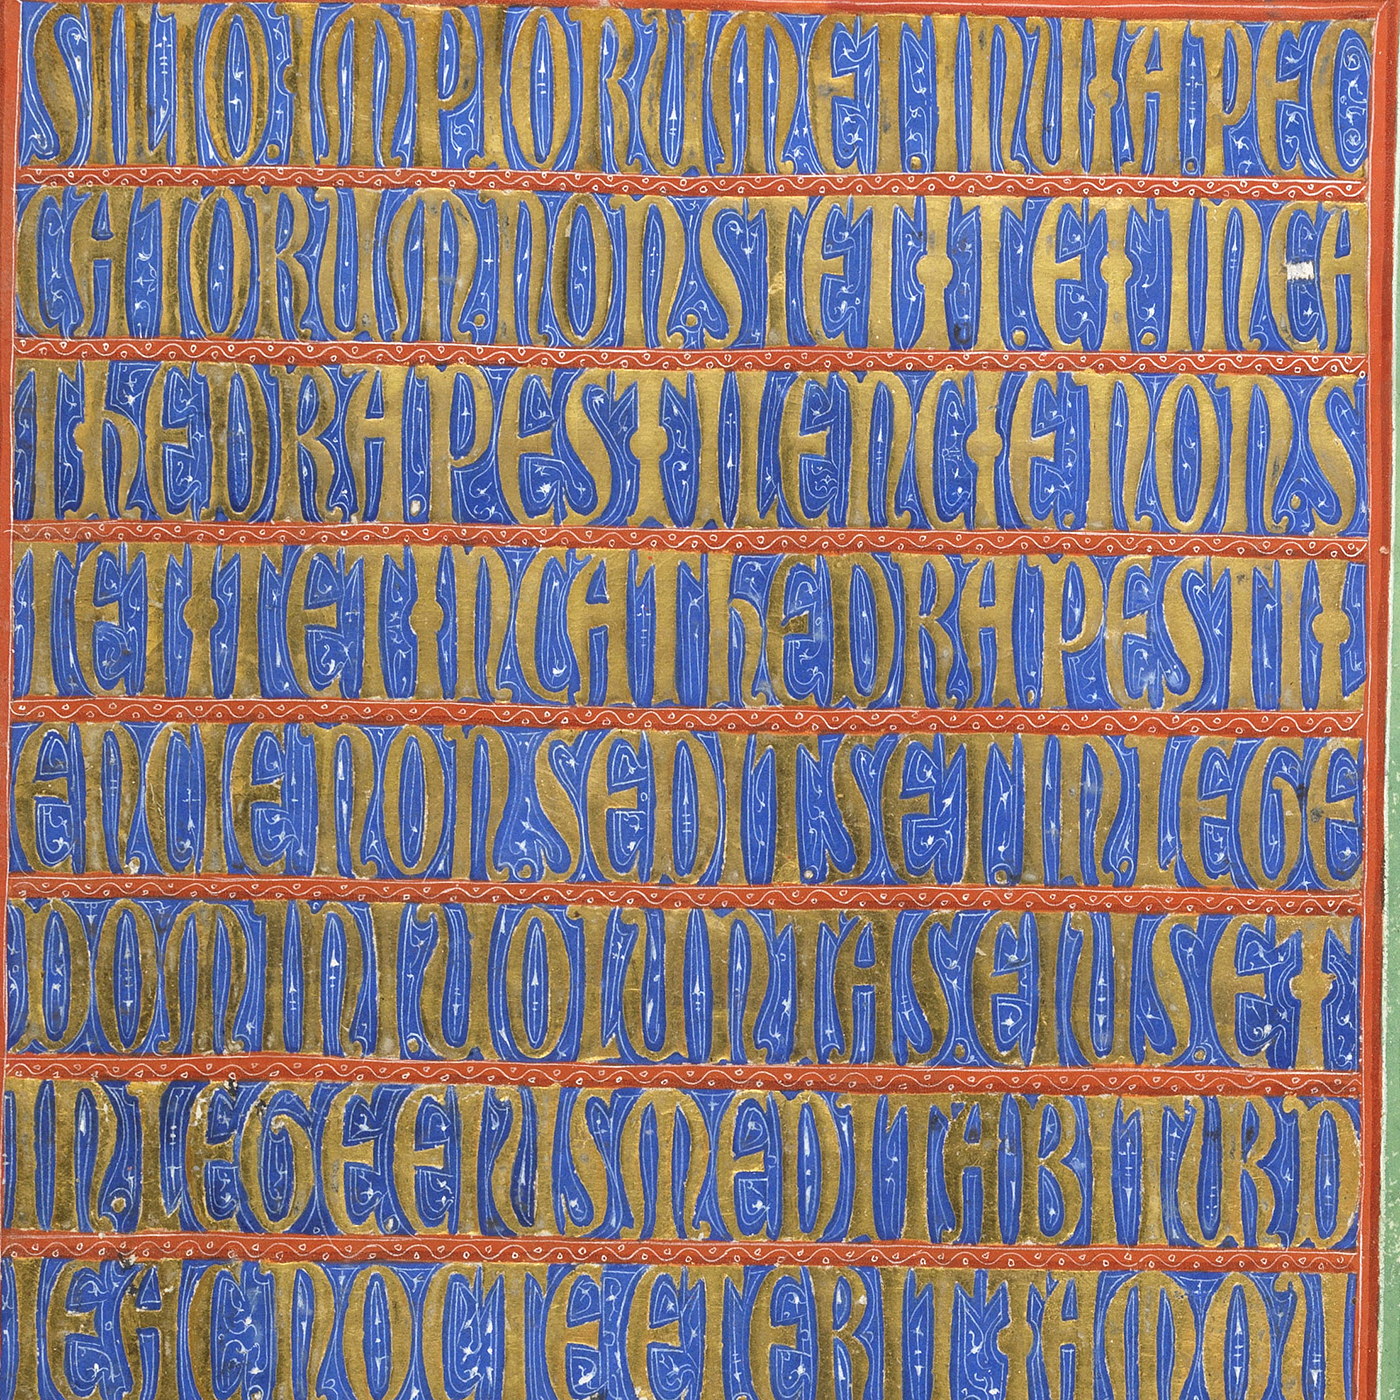 SILIO IMPIORUM ET IN UIA PEC
CATORUM NON STETIT ET IN CA
THEDRA PESTILENCIE NON S
TETIT ET IN CATHEDRA PESTIL
ENCIE NON SEDIT SET IN LEGE
DOMINI UOLUNTAS EIUS ET
IN LEGE EIUS MEDITABITUR D
IE AC NOCTE ET ERIT TAMQU